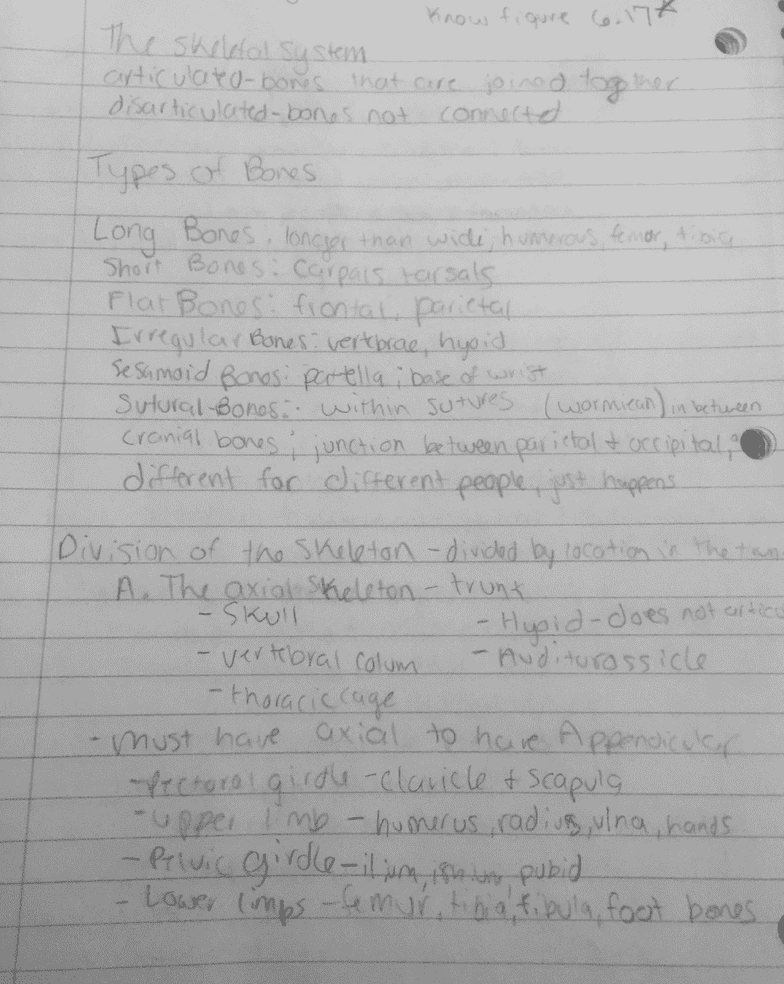 Know figure 6.17*
The Skeletal System
articulated-bones that are joined together
disarticulated-bones not connected
Types of Bones
Long Bones: longer than wide; humerous, femor, tibia
Short Bones: Carpals tarsals
Flat Bones: frontal, parietal
Irregular Bones: vertebrae, hyoid
Sesamoid Bones: partella; base of wrist
Sutural-Bones: within sutures (wormiean) in between
cranial bones; junction between parietal + occipital;
different for different people, just happens
Division of the Skeleton - divided by location in the
A. The axial Skeleton - trunk
- Skull - Hyoid - does not
- vertebral colum - Auditurossicle
- thoracic cage
- must have axial to have Appendicular
- Pectoral girdle - clavicle + scapula
- upper limb - humerus, radius, ulna, hands
- Pelvic Girdle - ilium, ishium, pubid
- Lower limps - femur, tibia, fibula, foot bones